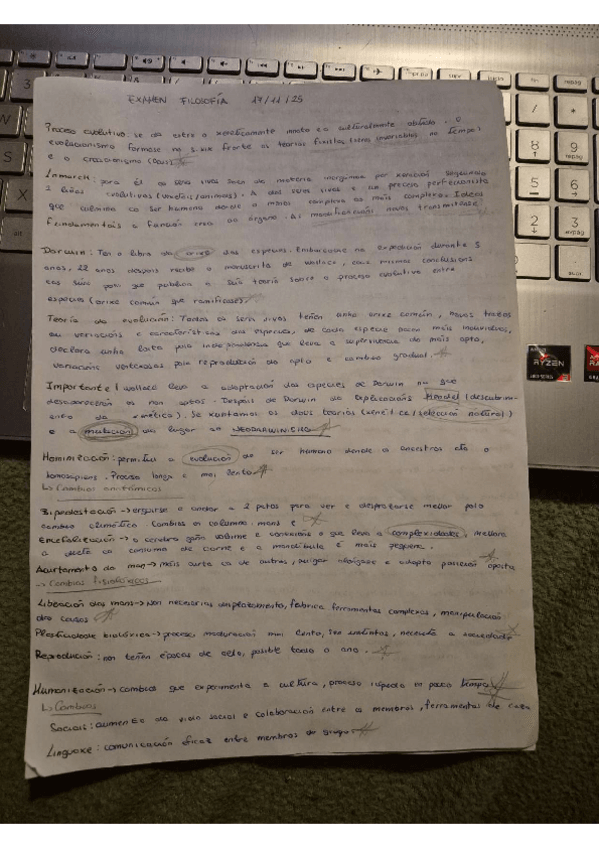 EXAMEN FILOSOFÍA 17/11/25
Proceso evolutivo: se da entre o xeneticamente innato e o culturalmente obtido. O
evolucionismo formase no s. XIX frente as teorías fixistas (seres invariables no tempo)
e o creacionismo (Deus).
para él os seres vivos da materia por xeración
2 liñas evolutivas (vexetais/animais). A dos seres vivos e un proceso perfeccionista
que culmina co ser humano dende o menos complexo ao máis complexo. Ideas
fundamentais a función crea ao órgano. As modificacións novas transmítense
Darwin: Ten o libro da orixe das especies. Embarcouse na expedición durante 5
anos, 22 anos despois recibe o manuscrito de Wallace, coas mismas conclusións
cas súas polo que publica a súa teoría sobre o proceso evolutivo entre
especies (orixe común que ramifícase).
Teoría da evolución: Todos os seres vivos teñen unha orixe común, novos trazos
ou variacións e características das especies, de cada especie nacen máis individuos,
declara unha loita pola que leva a supervivencia do máis apto,
variacións ventaxosas pola reprodución do apto e cambio gradual.
Importante! Wallace leva a adaptación das especies de Darwin na que
desaparecían os non aptos. Despois de Darwin da explicacións Mendel (descubri-
mento da xenética). Se xuntamos as dous teorías (xenética/selección natural)
e a mutación da lugar ao NEODARWINISMO
Hominización: permitiu a evolución do ser humano dende o ancestros ata o
homosapiens. Proceso longo e moi lento
↳ Cambios anatómicos
Bipedestación → erguirse e andar a 2 patas para ver e desprazarse mellor polo
cambio climático. Cambios na columna, mans e
Encefalización → o cerebro gaña volume e conexións o que leva a complexidades, mellora
a dieta co consumo de carne e a mandíbula é máis pequena.
Acurtamento da man → máis curta ca de outras, pulgar alóngase e adopta posición oposta
→ Cambios fisiolóxicos
Liberación das mans → Non necesarias desprazamento, fabrica ferramentas complexas, manipulación
das cousas
Plasticidade biolóxica → proceso, maduración moi lenta, sen instintos, necesita a sociedade
Reprodución: non teñen épocas de celo, posible todo o ano.
Humanización → cambios que experimenta a cultura, proceso rápido en pouco tempo
↳ Cambios
Sociais: aumento da vida social e colaboración entre os membros, ferramentas de caza
Linguaxe: comunicación eficaz entre membros do grupo